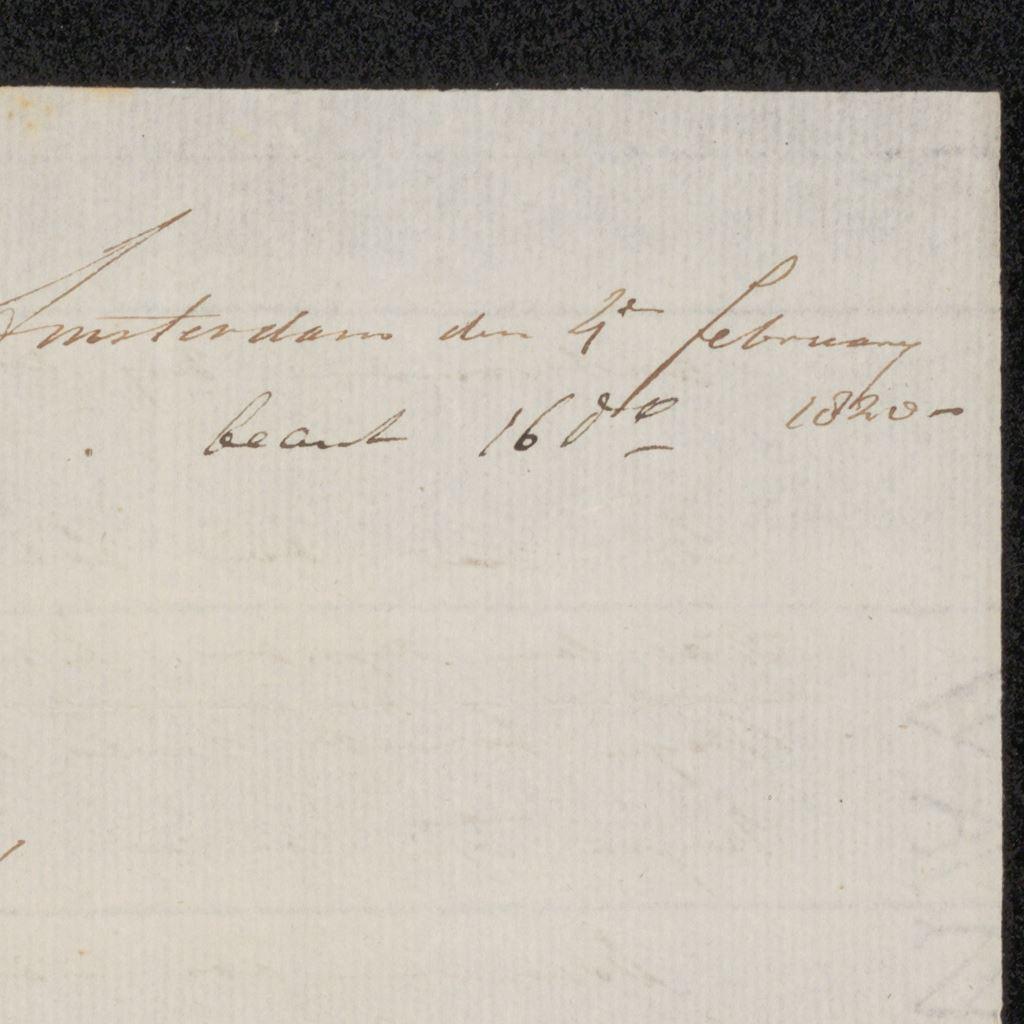 Amsterdam den 4e february
beant 16 dto 1820